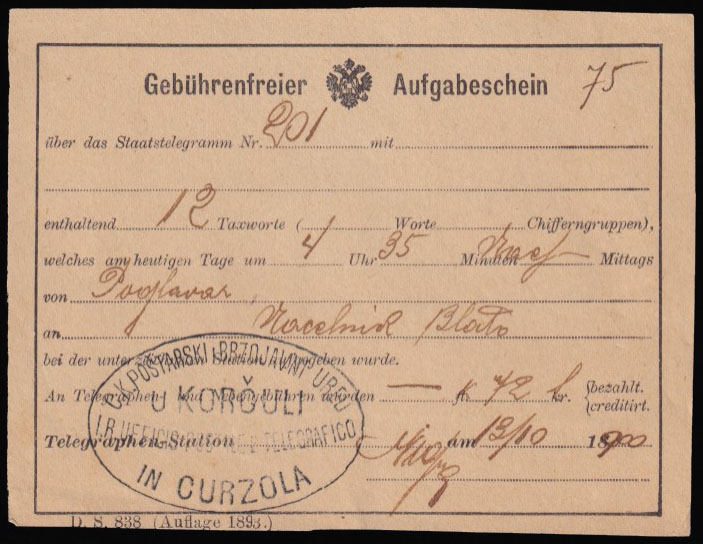 Gebührenfreier Aufgabeschein 75
über das Staatstelegramm Nr. 201 mit
enthaltend 12 Taxworte ( Worte Chifferngruppen),
welches am heutigen Tage um 4 Uhr 35 Minuten Nach Mittags
von Poglavar,
an Nacelnik Blato
bei der unterzeichneten Station aufgegeben wurde.
An Telegraphen- und Nebengebühren wurden — fl. 72 kr. {bezahlt. creditirt.
C.K. POŠTARSKI I BRZOJAVNI URED
U KORČULI
I.R. UFFICIO POSTALE TELEGRAFICO
IN CURZOLA
Telegraphen-Station am 13/10 1900
D. S. 838 (Auflage 1893.)